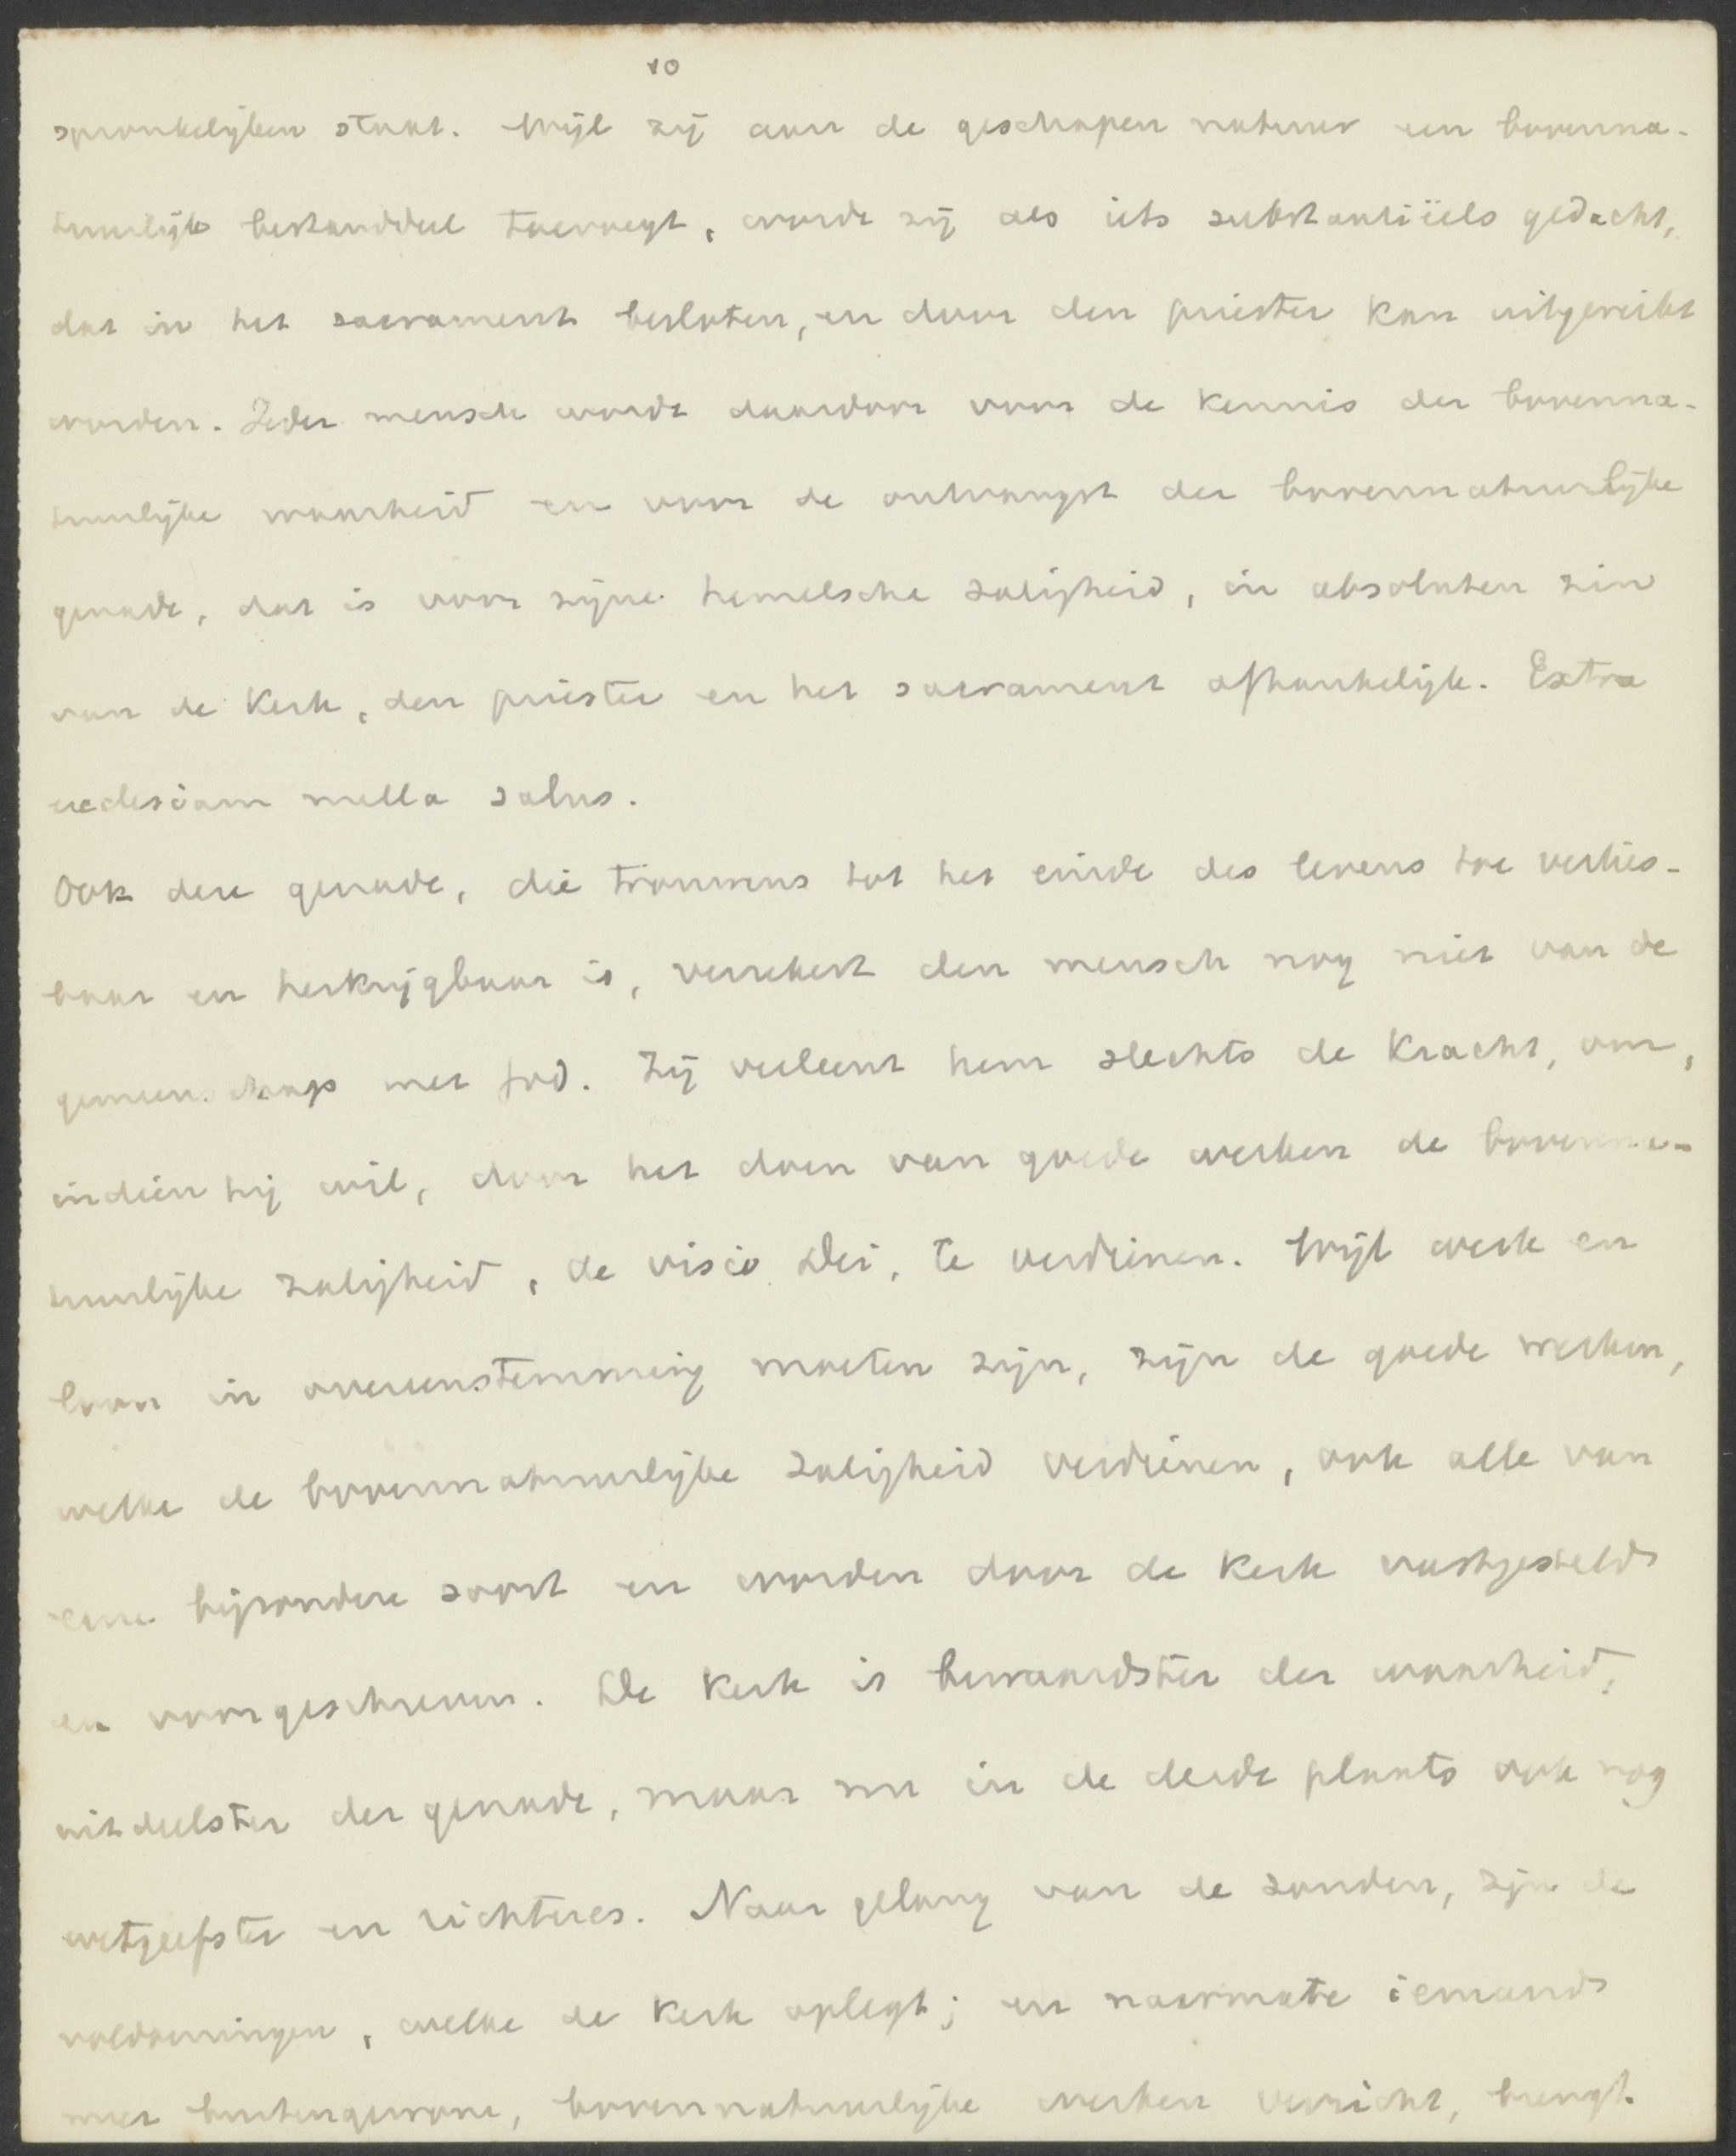 10
spronkelijken staat. Wijl zij aan de geschapen natuur een bovenna-
tuurlijk bestanddeel toevoegt, wordt zij als iets substantiëels gedacht,
dat in het sacrament besloten, en door den priester kan uitgereikt
worden. Ieder mensch wordt daardoor voor de kennis der bovenna-
tuurlijke waarheid en voor de ontvangst der bovennatuurlijke
genade, dat is voor zijne hemelsche zaligheid, in absoluten zin
van de Kerk, den priester en het sacrament afhankelijk. Extra
ecclesiam nulla salus.
Ook deze genade, die trouwens tot het einde des levens toe verlies-
baar en herkrijgbaar is, verzekert den mensch nog niet van de
gemeenschap met God. Zij verleent hem slechts de kracht, om,
indien hij wil, door het doen van goede werken de bovenna-
tuurlijke zaligheid, de visio Dei, te verdienen. Wijl werk en
loon in overeenstemming moeten zijn, zijn de goede werken,
welke de bovennatuurlijke zaligheid verdienen, ook alle van
eene bijzondere soort en worden door de Kerk vastgesteld
en voorgeschreven. De Kerk is bewaardster der waarheid,
uitdeelster der genade, maar nu in de derde plaats ook nog
wetgeefster en richteres. Naar gelang van de zonden, zijn de
voldoeningen, welke de Kerk oplegt; en naarmate iemand
meer buitengewone, bovennatuurlijke werken verricht, brengt